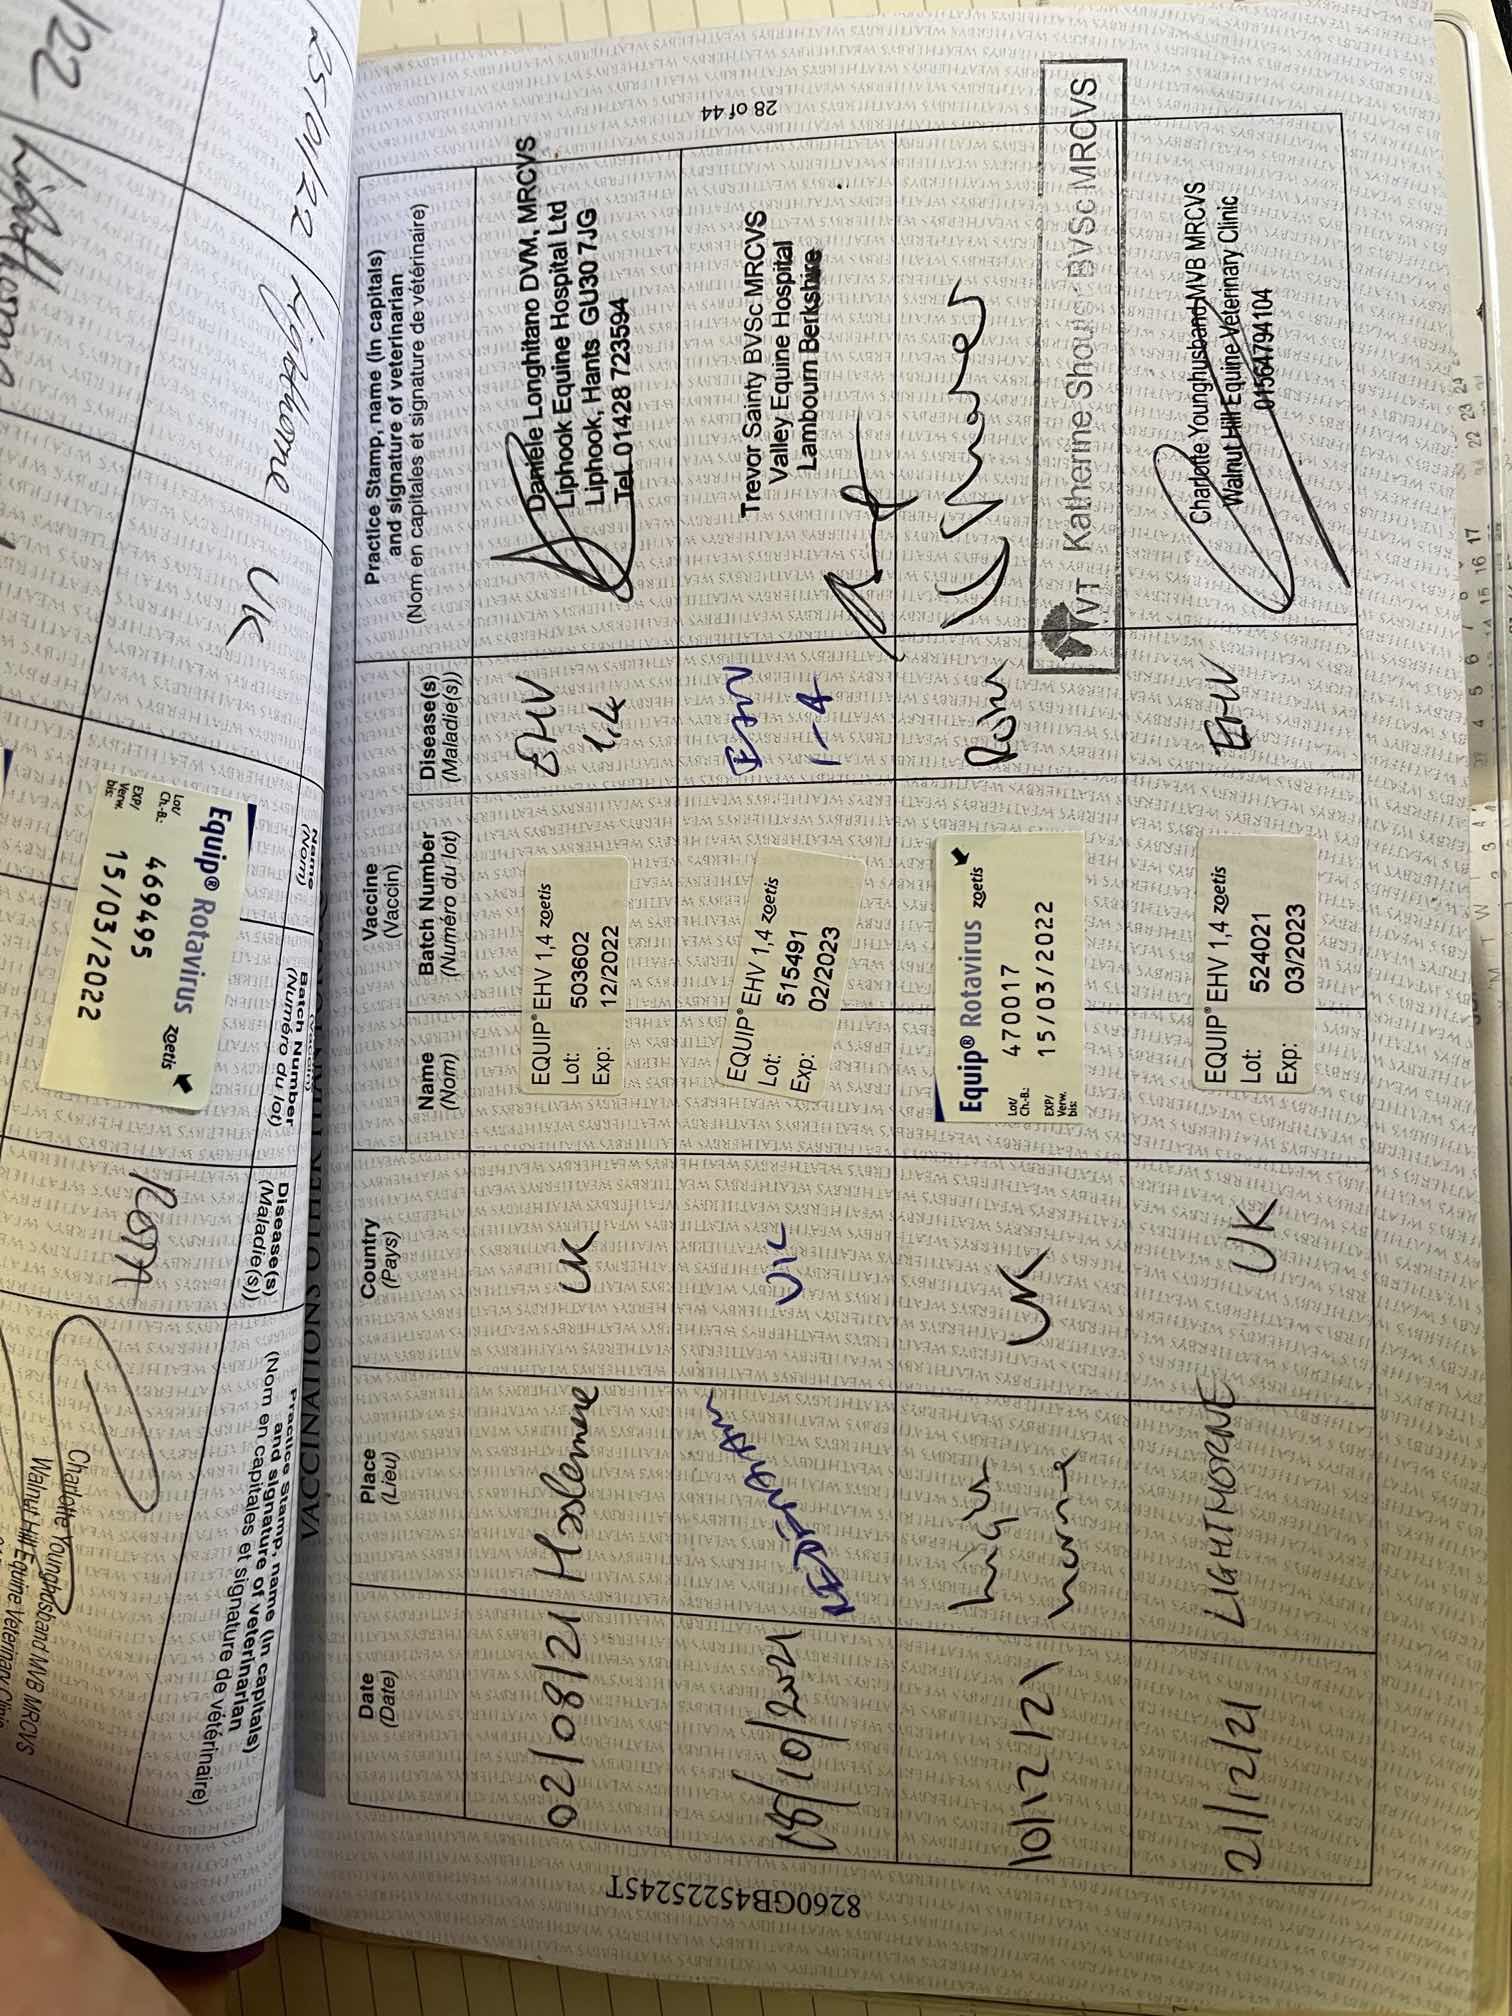 VACCINATIONS OTHER THAN
Date
(Date)
Place
(Lieu)
Country
(Pays)
Vaccine
(Vaccin)
Name
(Nom)
Batch Number
(Numéro du lot)
Disease(s)
(Maladie(s))
Practice Stamp, name (In capitals)
and signature of veterinarian
(Nom en capitales et signature de vétérinaire)
02/08/21
Haslemere
UK
EQUIP® EHV 1,4 zoetis
Lot: 503602
Exp: 12/2022
EHV
1,4
Daniele Longhitano DVM, MRCVS
Liphook Equine Hospital Ltd
Liphook, Hants GU30 7JG
Tel. 01428 723594
18/10/2021
UK
EQUIP® EHV 1,4 zoetis
Lot: 515491
Exp: 02/2023
EHV
1-4
Trevor Sainty BVSc MRCVS
Valley Equine Hospital
Lambourn Berkshire
10/12/21
Light
horne
UK
Equip® Rotavirus zoetis
Lot/
Ch.-B.: 470017
EXP/
Verw.
bis: 15/03/2022
Rota
VT Katherine Shours BVSc MRCVS
21/12/21
LIGHTHORNE
UK
EQUIP® EHV 1,4 zoetis
Lot: 524021
Exp: 03/2023
EHV
Charlotte Younghusband MVB MRCVS
Walnut Hill Equine Veterinary Clinic
01564794104
28 of 44
8260GB45225245T
/22
Lighthorne
25/01/22
Lighthorne
UK
Equip® Rotavirus zoetis
Lot/
Ch.-B.: 469495
EXP/
Verw.
bis: 15/03/2022
Rota
Charlotte Younghusband MVB MRCVS
Walnut Hill Equine Veterinary Clinic
Name
(Nom)
Batch Number
(Numéro du lot)
Disease(s)
(Maladie(s))
Practice Stamp, name (In capitals)
and signature of veterinarian
(Nom en capitales et signature de vétérinaire)